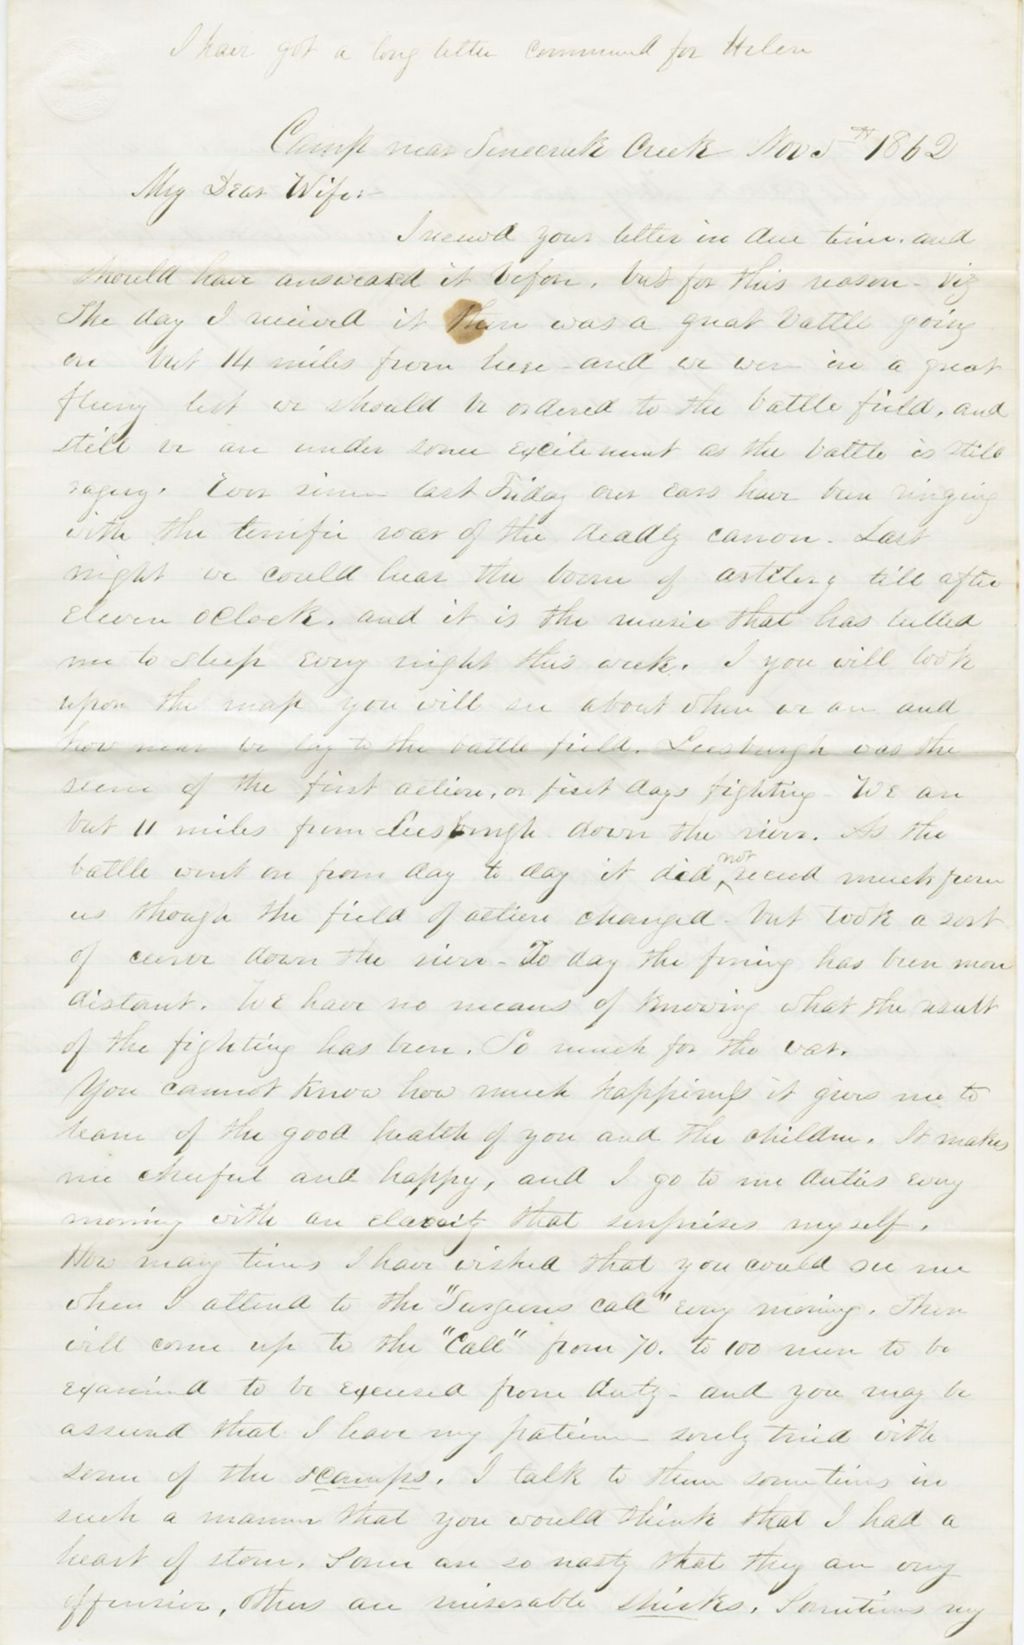 I have got a long letter commenced for Helen
Camp near Senecreek Creek Nov 5th 1862
My Dear Wife:-
I receivd your letter in due time. and
should have answeared it before. but for this reason - viz
The day I received it there was a great battle going
on but 14 miles from here - and we were in a great
flurry lest we should be ordered to the battle field, and
still we are under some excitement as the battle is still
raging. Ever since last Friday our ears have been ringing
with the terrific roar of the deadly canon. Last
night we could hear the boom of artilery till after
eleven oClock. and it is the music that has lulled
me to sleep every night this week. I you will look
upon the map you will see about where we are and
how near we lay to the battle field. Leesburgh was the
scene of the first action, or first days fighting - We are
but 11 miles from Leesburgh down the river. As the
battle went on from day to day it did not receed much from
us though the field of action changed - but took a sort
of curve down the river - To day the firing has been more
distant. We have no means of knowing what the result
of the fighting has been. So much for the war.
You cannot know how much happiness it gives me to
learn of the good health of you and the children. It makes
me cheerful and happy, and I go to me duties every
morning with an alacrity that surprises myself.
How many times I have wished that you could see me
when I attend to the "Surgeons call" every morning. There
will come up to the "Call" from 70. to 100 men to be
examined to be excused from duty - and you may be
assured that I have my patience sorely tried with
some of the scamps. I talk to them sometimes in
such a manner that you would think that I had a
heart of stone. Some are so nasty that they are very
offensive, others are miserable shirks. Sometimes my